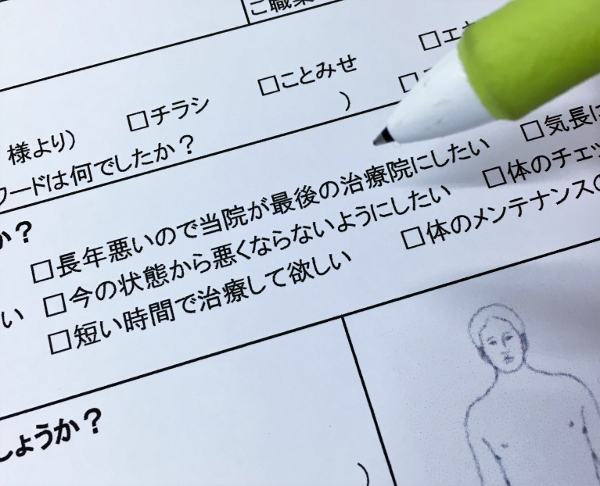 ご職業
□チラシ □ことみせ □エキ
様より)
)
ワードは何でしたか？
か？
□長年悪いので当院が最後の治療院にしたい □気長に
い □今の状態から悪くならないようにしたい □体のチェッ
□短い時間で治療して欲しい □体のメンテナンスの
しょうか？
)